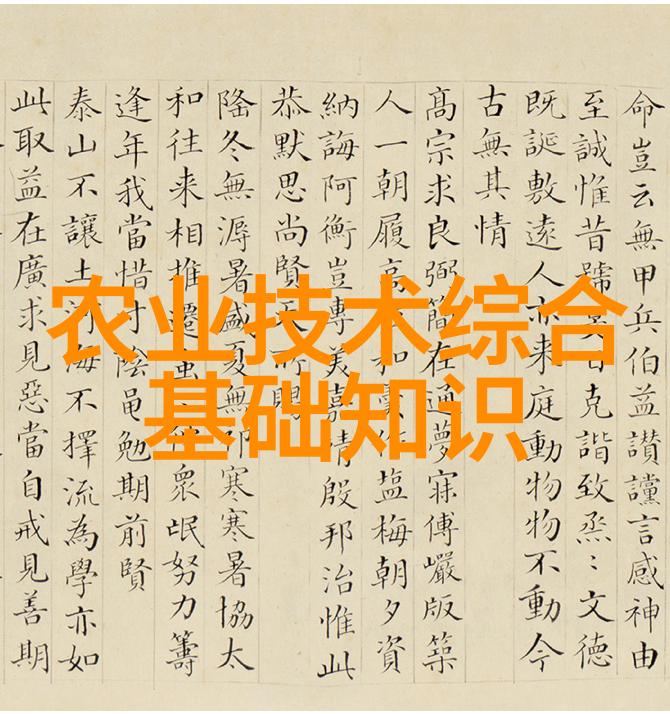 农业技术综合
基础知识
命豈云無甲兵伯益讃讜言感神由
至誠惟昔號 克諧致烝〻文德
既誕敷遠人亦来庭動物物不動今
古無其情
髙宗求良弼簡在通夢寐傅巖版築
人一朝履 和羹作塩梅朝夕資
納誨阿衡豈專美嘉靖殷邦治惟此
恭默思尚賢 所賜
隆冬無溽暑盛夏無祁寒寒暑協太
和往来相推遷 衆氓努力籌
逢年我當惜寸陰黽勉期前賢
泰山不讓土河海不擇流為學亦如
此取益在廣求見惡當自戒見善期